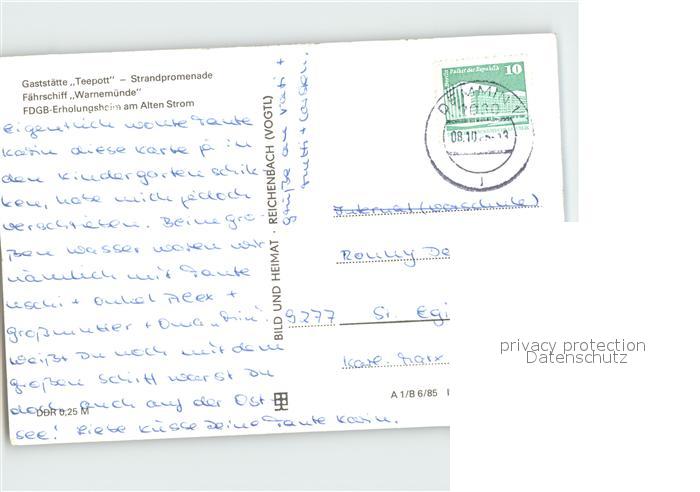 Gaststätte „Teepott" – Strandpromenade
Fährschiff „Warnemünde"
FDGB-Erholungsheim am Alten Strom
Eigentlich wollte Tante
Karin diese Karte ja in
den Kindergarten schik-
ken, habe mich jedoch
verschrieben. Beim gro-
ßen Wasser waren wir
nämlich mit Tante
Uschi + Onkel Alex +
Großmutter + Oma
Weißt Du noch mit dem
großen Schiff warst Du
doch auch auf der Ost-
see! Liebe Küsse Deine Tante Karin.
Grüße an Vati +
Mutti +
DDR 0,25 M
BILD UND HEIMAT · REICHENBACH (VOGTL)
A 1/B 6/85
Palast der Republik
10
DEMMIN 1
08.10
Internat (Vorschule)
Ronny De
9277 Sr. Egi
Karl-Marx
privacy protection
Datenschutz